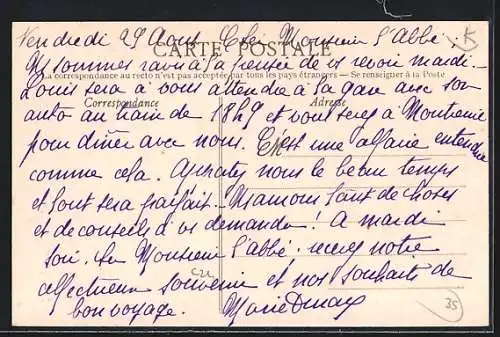 Vendredi 29 Août. Cher Monsieur l'Abbé.
CARTE POSTALE
Ns sommes ravis à la pensée de vs revoir mardi.
La correspondance au recto n'est pas acceptée par tous les pays étrangers — Se renseigner à la Poste
Louis sera à vous attendre à la gare avec son
Correspondance
Adresse
auto au train de 18h9 et vous serez à
pour dîner avec nous. C'est une affaire entendue
comme cela. Apportez nous le beau temps
et tout sera parfait. Ns avons tant de choses
et de conseils à vs demander! A mardi
soir. Cher Monsieur l'Abbé. recevez notre
affectueux souvenir et nos souhaits de
bon voyage. Marie
35